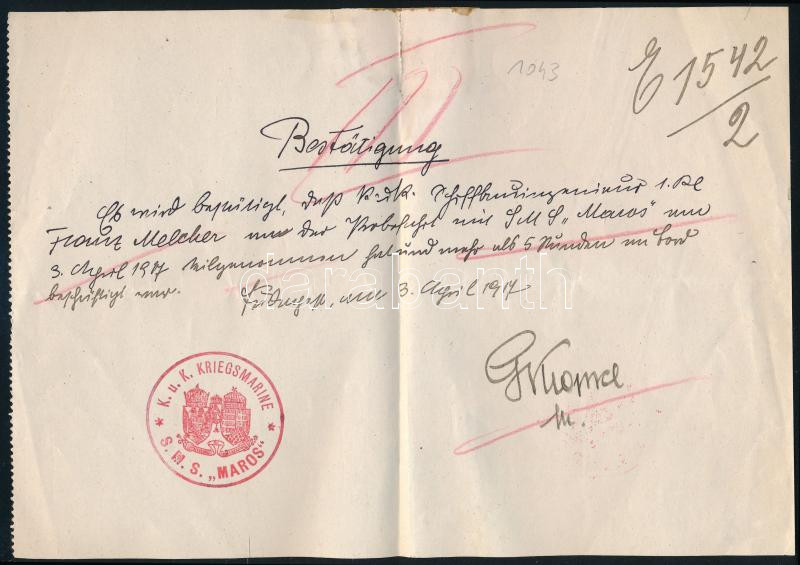 E 1542/2
1043
III
Bestätigung
Es wird bestätigt, daß k.u.k. Schiffbauingenieur 1. Kl
Franz Melcher an der Probefahrt mit SMS „Maros" am
3. April 1917 teilgenommen hat und mehr als 5 Stunden an Bord
beschäftigt war.
Budapest, am 3. April 1917
darabanth
K. u. K. KRIEGSMARINE
S. M. S. „MAROS"